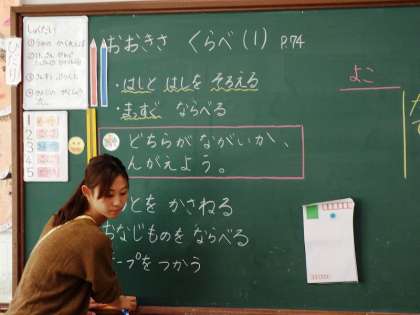 しゅくだい
ひだり
おおきさ くらべ(1) P.74
・はしと はしを そろえる
・まっすぐ ならべる
どちらが ながいか、
んがえよう。
とを かさねる
なじものを ならべる
ープを つかう
よこ
1
2
3
4
5